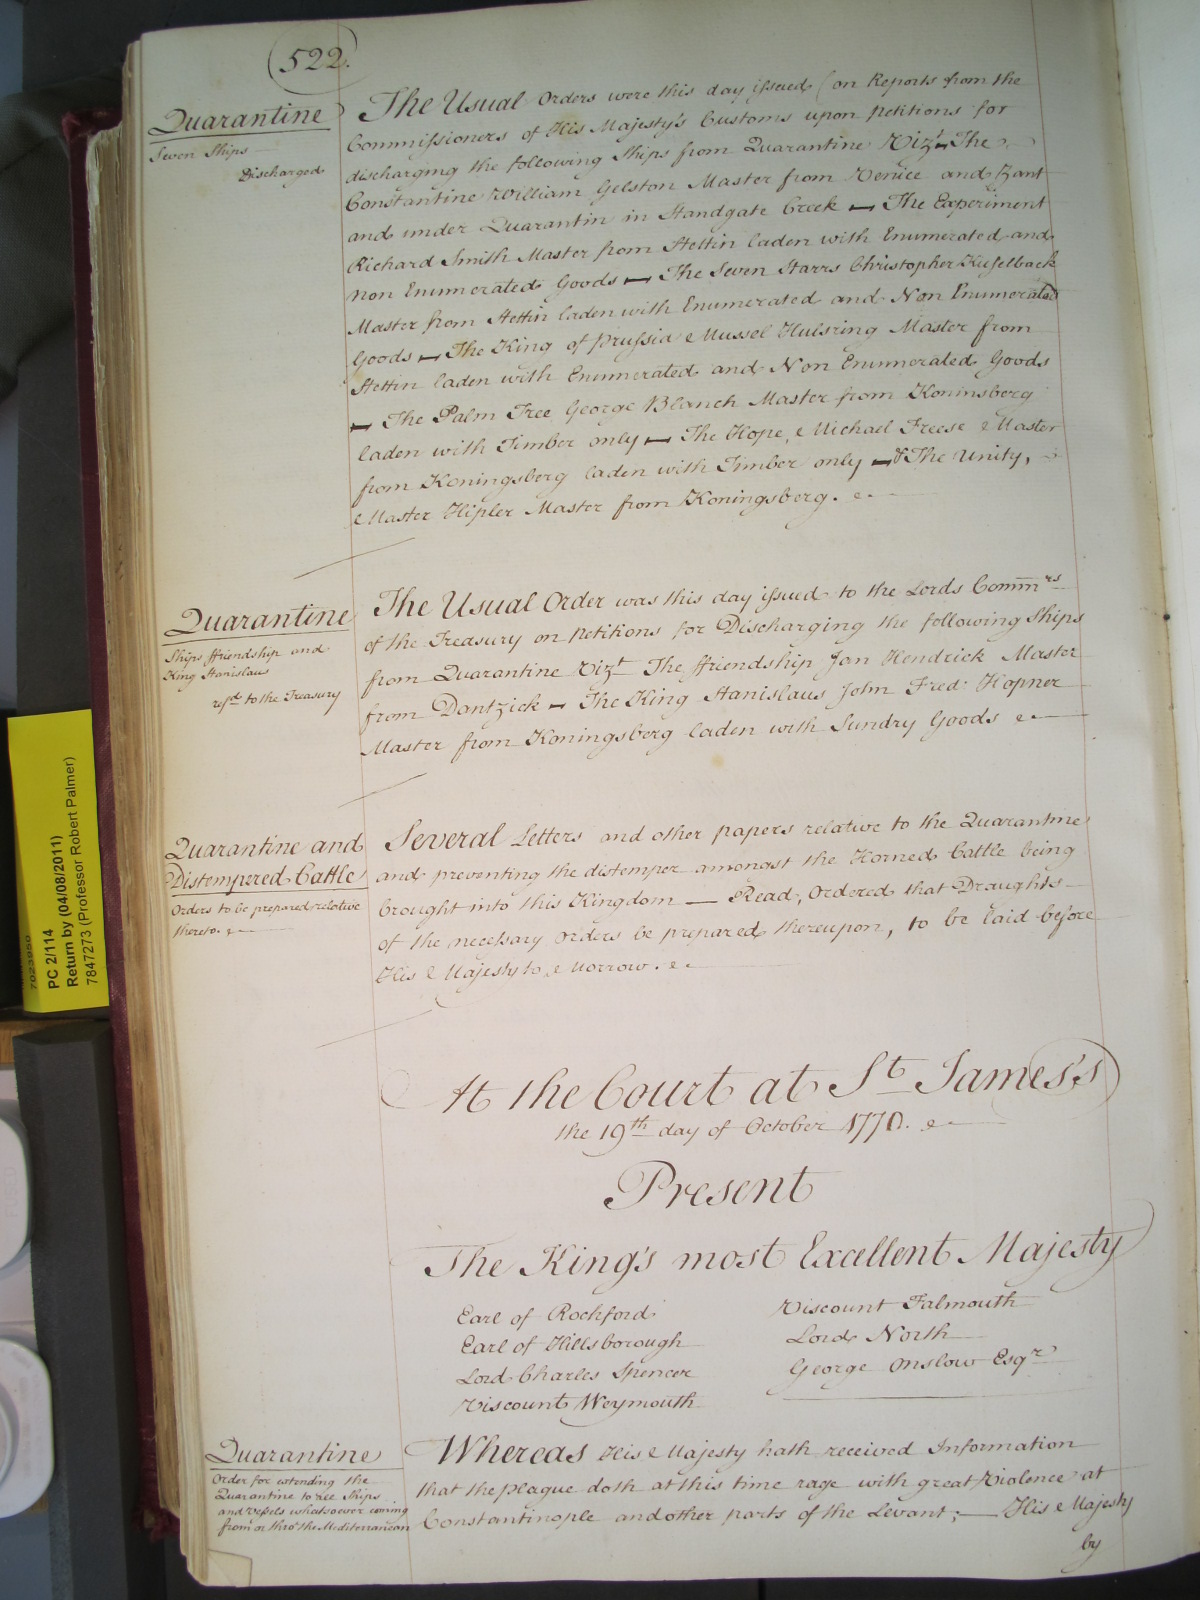 522.
Quarantine
Seven Ships
Discharged
The Usual Orders were this day issued (on Reports from the
Commissioners of His Majesty's Customs upon Petitions for
discharging the following Ships from Quarantine Vizt The
Constantine William Gelston Master from Venice and Zant
and under Quarantin in Standgate Creek — The Experiment
Richard Smith Master from Stettin laden with Enumerated and
non Enumerated Goods — The Seven Starrs Christopher Kuselback
Master from Stettin laden with Enumerated and Non Enumerated
Goods — The King of Prussia Mussel Hulsring Master from
Stettin laden with Enumerated and Non Enumerated Goods
— The Palm Tree George Blanch Master from Koninsberg
laden with Timber only — The Hope, Michael Freese Master
from Koningsberg laden with Timber only — & The Unity,
Master Hipler Master from Koningsberg.
Quarantine
Ships ffriendship and
King Stanislaus
refd to the Treasury
The Usual Order was this day issued to the Lords Commrs
of the Treasury on Petitions for Discharging the following Ships
from Quarantine Vizt The ffriendship Jan Hendrick Master
from Dantzick — The King Stanislaus John Fred: Hopner
Master from Koningsberg laden with Sundry Goods
Quarantine and
Distempered Cattle
Orders to be prepared relative
thereto.
Several Letters and other papers relative to the Quarantine
and preventing the distemper amongst the Horned Cattle being
brought into this Kingdom — Read, Ordered that Draughts
of the necessary Orders be prepared thereupon, to be laid before
His Majesty to Morrow.
At the Court at St James's
the 19th day of October 1770.
Present
The King's most Excellent Majesty
Earl of Rochford
Earl of Hillsborough
Lord Charles Spencer
Viscount Weymouth
Viscount Falmouth
Lord North
George Onslow Esqr
Quarantine
Order for extending the
Quarantine to all Ships
and Vessels whatsoever coming
from or thro' the Mediterranean
Whereas His Majesty hath received Information
that the plague doth at this time rage with great Violence at
Constantinople and other parts of the Levant; — His Majesty
by
PC 2/114
Return by (04/08/2011)
7847273 (Professor Robert Palmer)